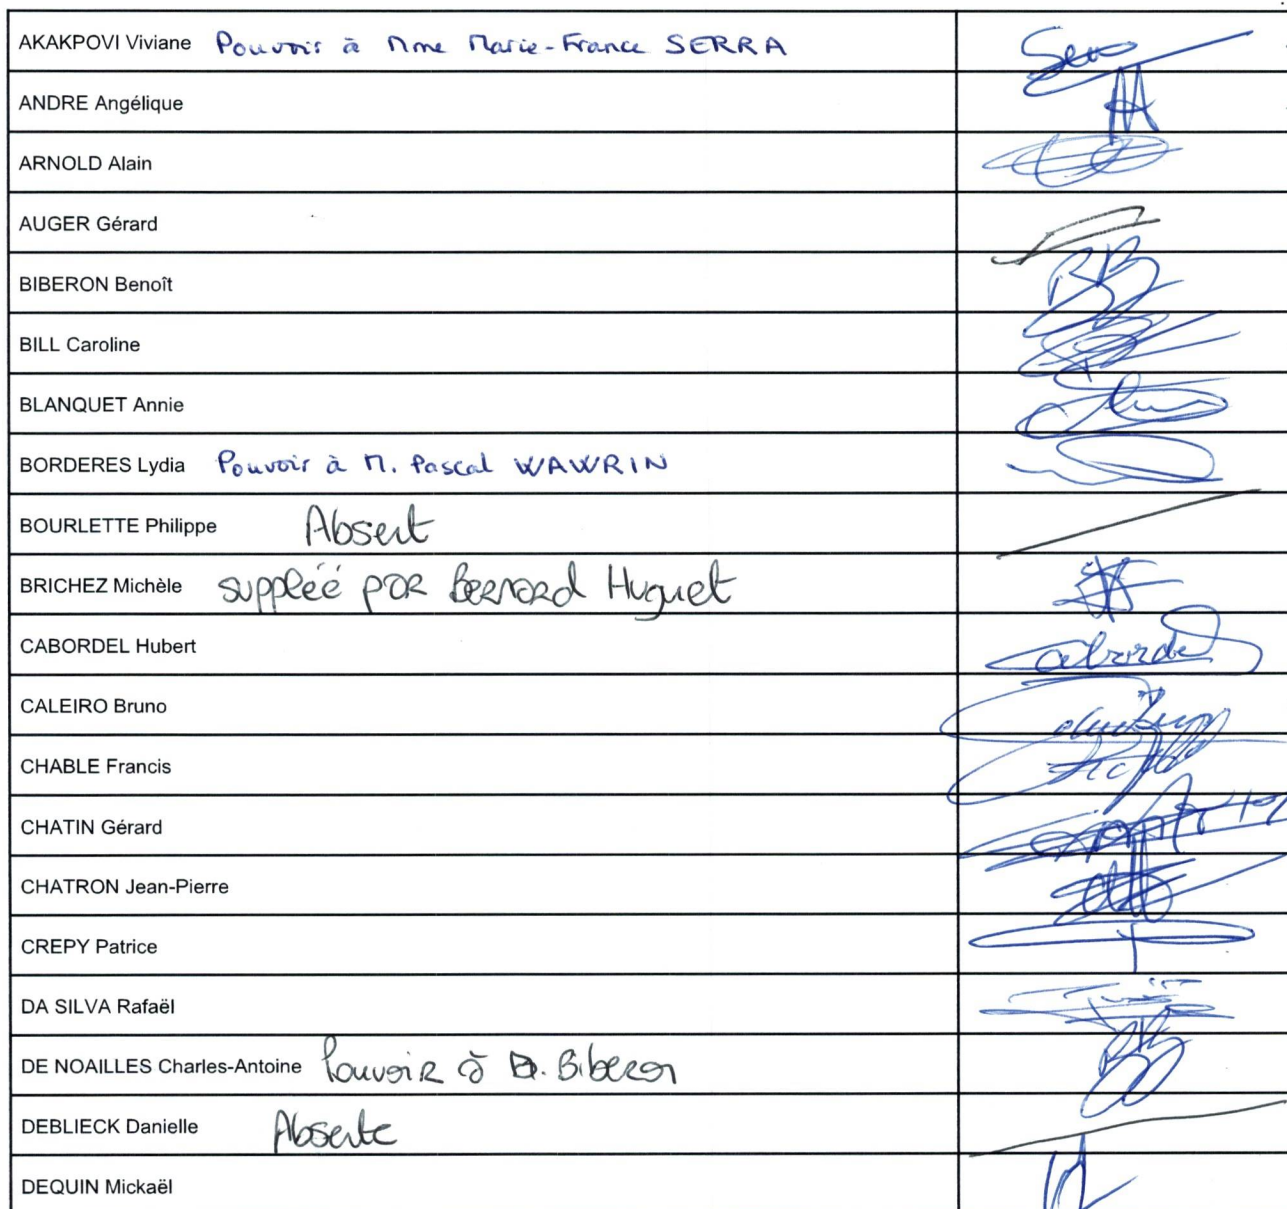 AKAKPOVI Viviane Pouvoir à Mme Marie-France SERRA
ANDRE Angélique
ARNOLD Alain
AUGER Gérard
BIBERON Benoît
BILL Caroline
BLANQUET Annie
BORDERES Lydia Pouvoir à M. Pascal WAWRIN
BOURLETTE Philippe Absent
BRICHEZ Michèle suppléé par Bernard Huguet
CABORDEL Hubert
CALEIRO Bruno
CHABLE Francis
CHATIN Gérard
CHATRON Jean-Pierre
CREPY Patrice
DA SILVA Rafaël
DE NOAILLES Charles-Antoine Pouvoir à B. Biberon
DEBLIECK Danielle Absente
DEQUIN Mickaël